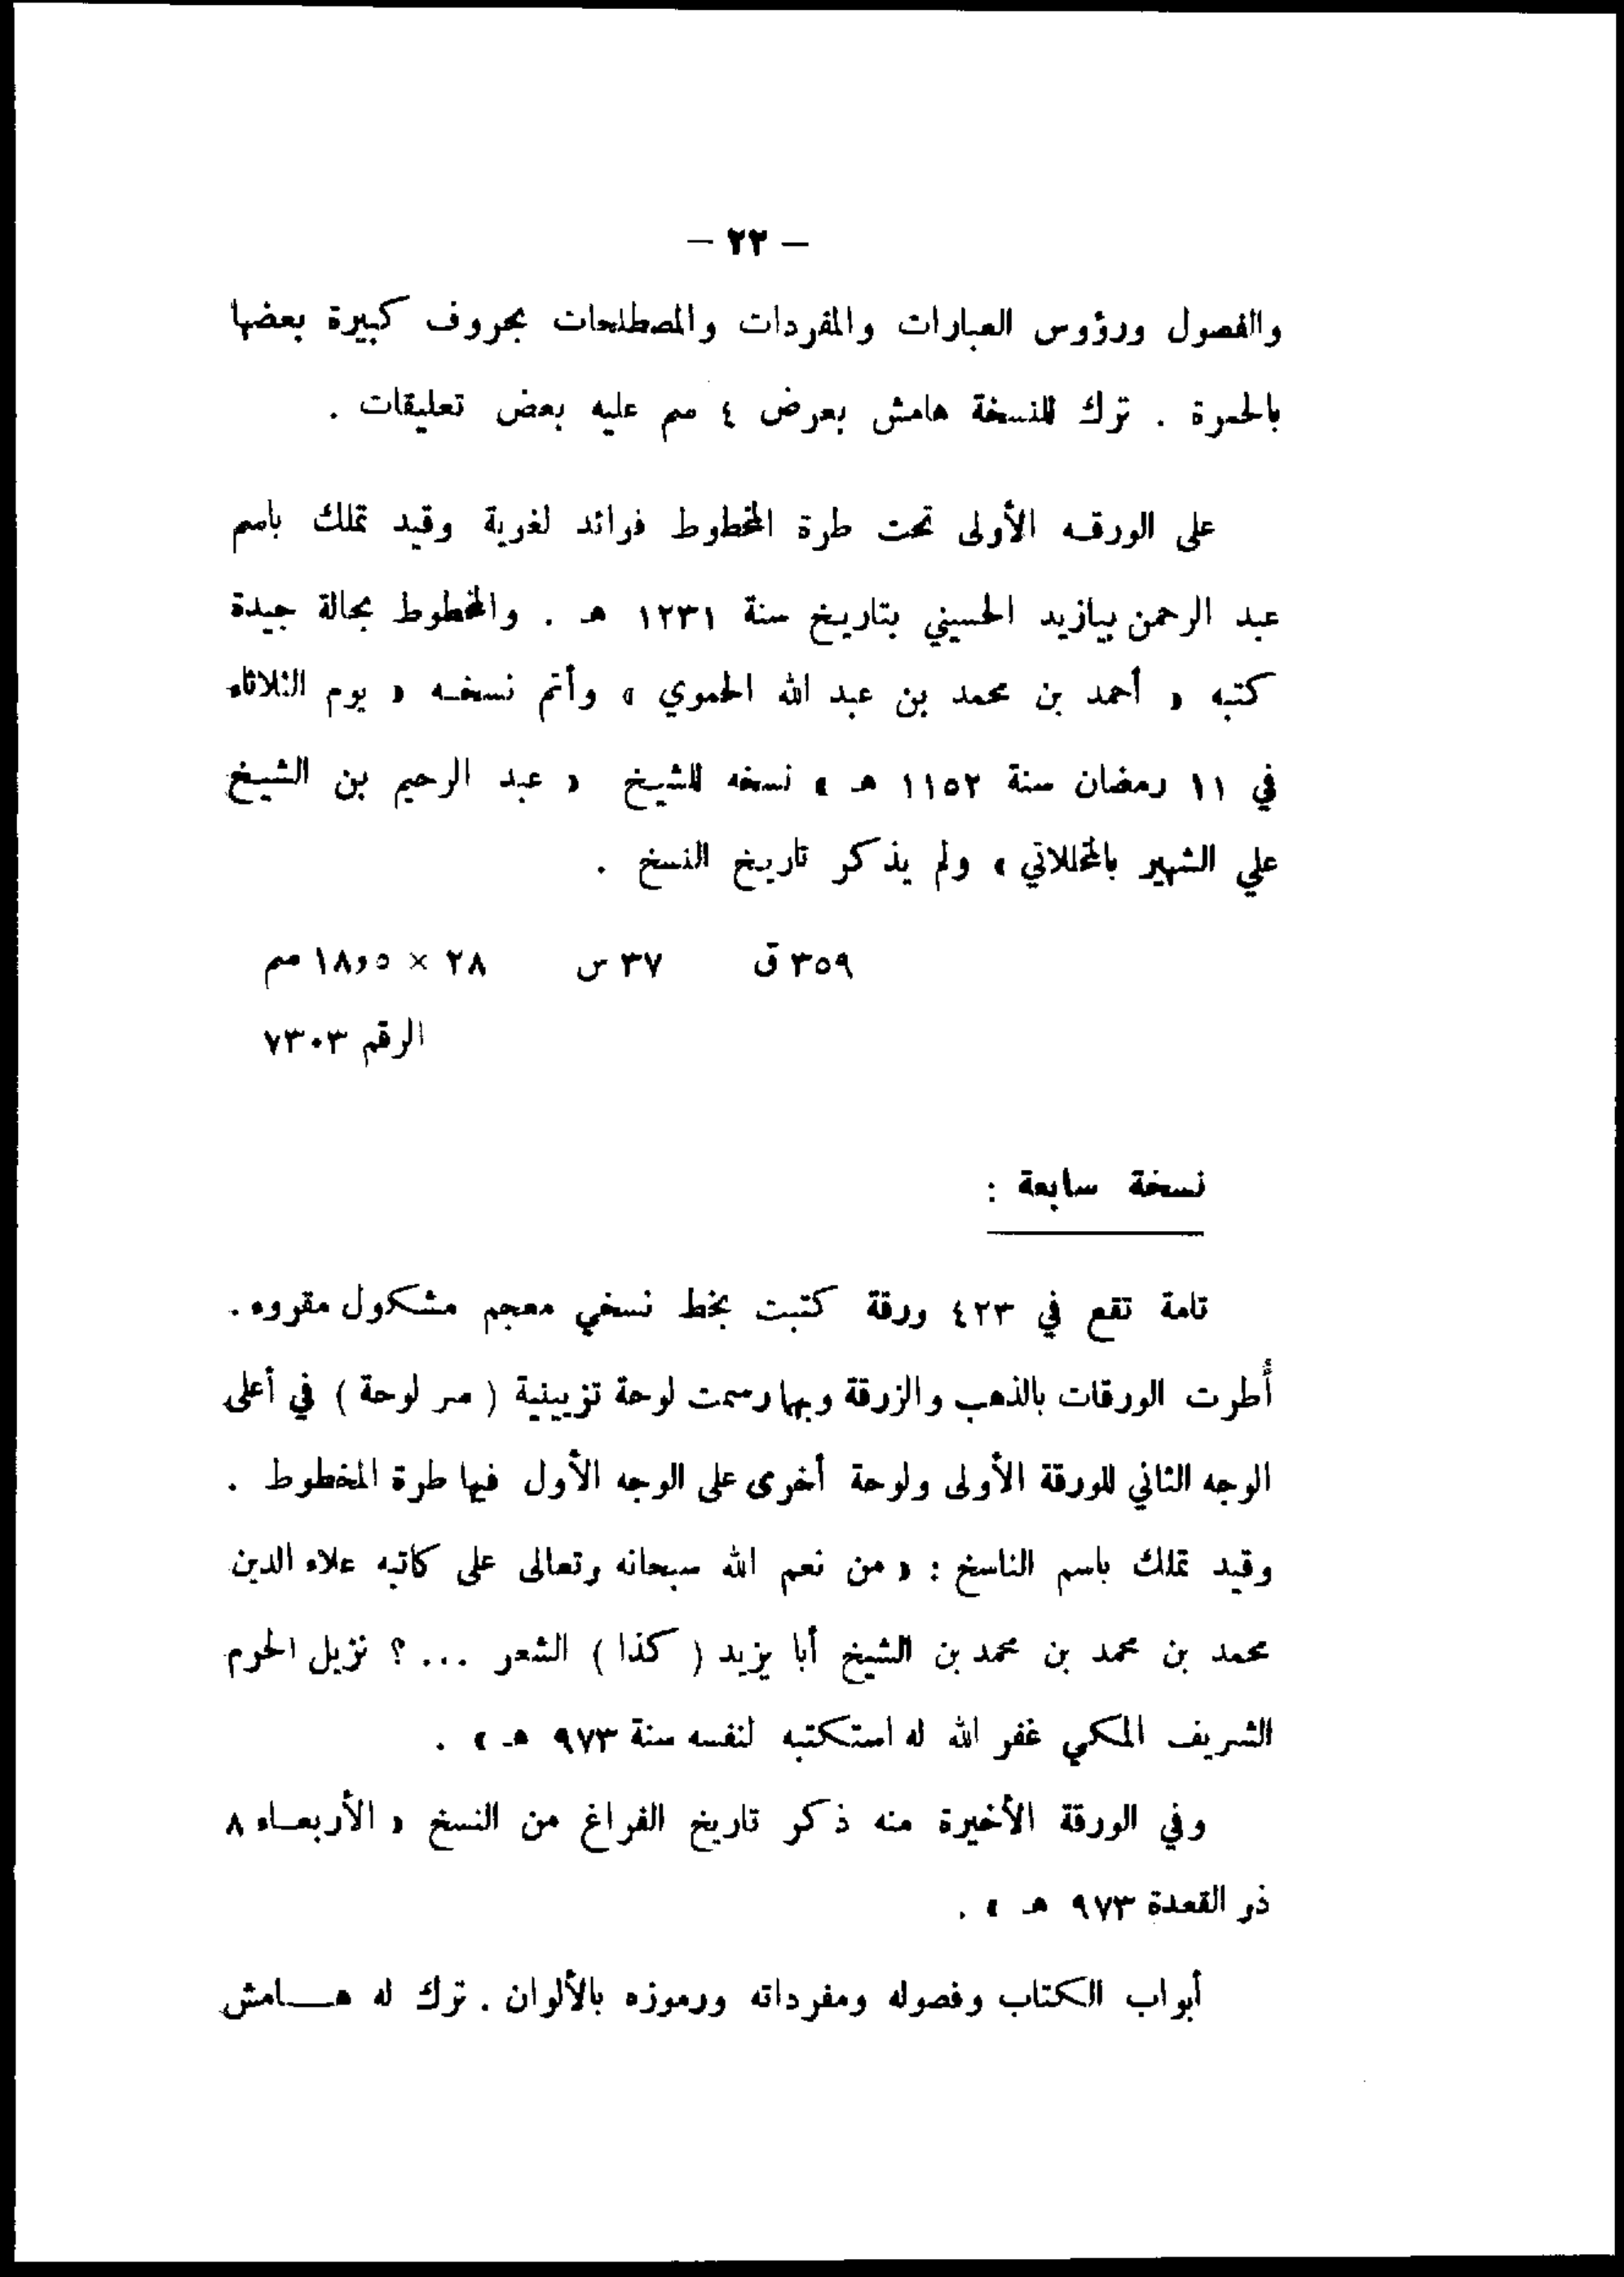 — ٢٢ —
والفصول ورؤوس العبارات والمفردات والمصطلحات بحروف كبيرة بعضها
بالحمرة . ترك للنسخة هامش بعرض ٤ سم عليه بعض تعليقات .
على الورقـه الأولى تحت طرة المخطوط فوائد لغوية وقيد تملك باسم
عبد الرحمن بيازيد الحسيني بتاريخ سنة ١٢٣١ هـ . والمخطوط بحالة جيدة
كتبه « أحمد بن محمد بن عبد الله الحموي » وأتم نسخـه « يوم الثلاثاء
في ١١ رمضان سنة ١١٥٢ هـ » نسخه للشيخ « عبد الرحيم بن الشيخ
علي الشهير بالمخللاتي » ولم يذكر تاريخ النسخ .
٣٥٩ ق ٣٧ س ٢٨ × ١٨٫٥ سم
الرقم ٧٣٠٣
نسخة سابعة :
تامة تقع في ٤٢٣ ورقة كتبت بخط نسخي معجم مشكول مقروء .
أُطرت الورقات بالذهب والزرقة وبها رسمت لوحة تزيينية ( سر لوحة ) في أعلى
الوجه الثاني للورقة الأولى ولوحة أخرى على الوجه الأول فيها طرة المخطوط .
وقيد تملك باسم الناسخ : « من نعم الله سبحانه وتعالى على كاتبه علاء الدين
محمد بن محمد بن محمد بن الشيخ أبا يزيد ( كذا ) الشعر ... ؟ نزيل الحرم
الشريف المكي غفر الله له استكتبه لنفسه سنة ٩٧٣ هـ » .
وفي الورقة الأخيرة منه ذكر تاريخ الفراغ من النسخ « الأربعـاء ٨
ذو القعدة ٩٧٣ هـ » .
أبواب الكتاب وفصوله ومفرداته ورموزه بالألوان . ترك له هـــامش